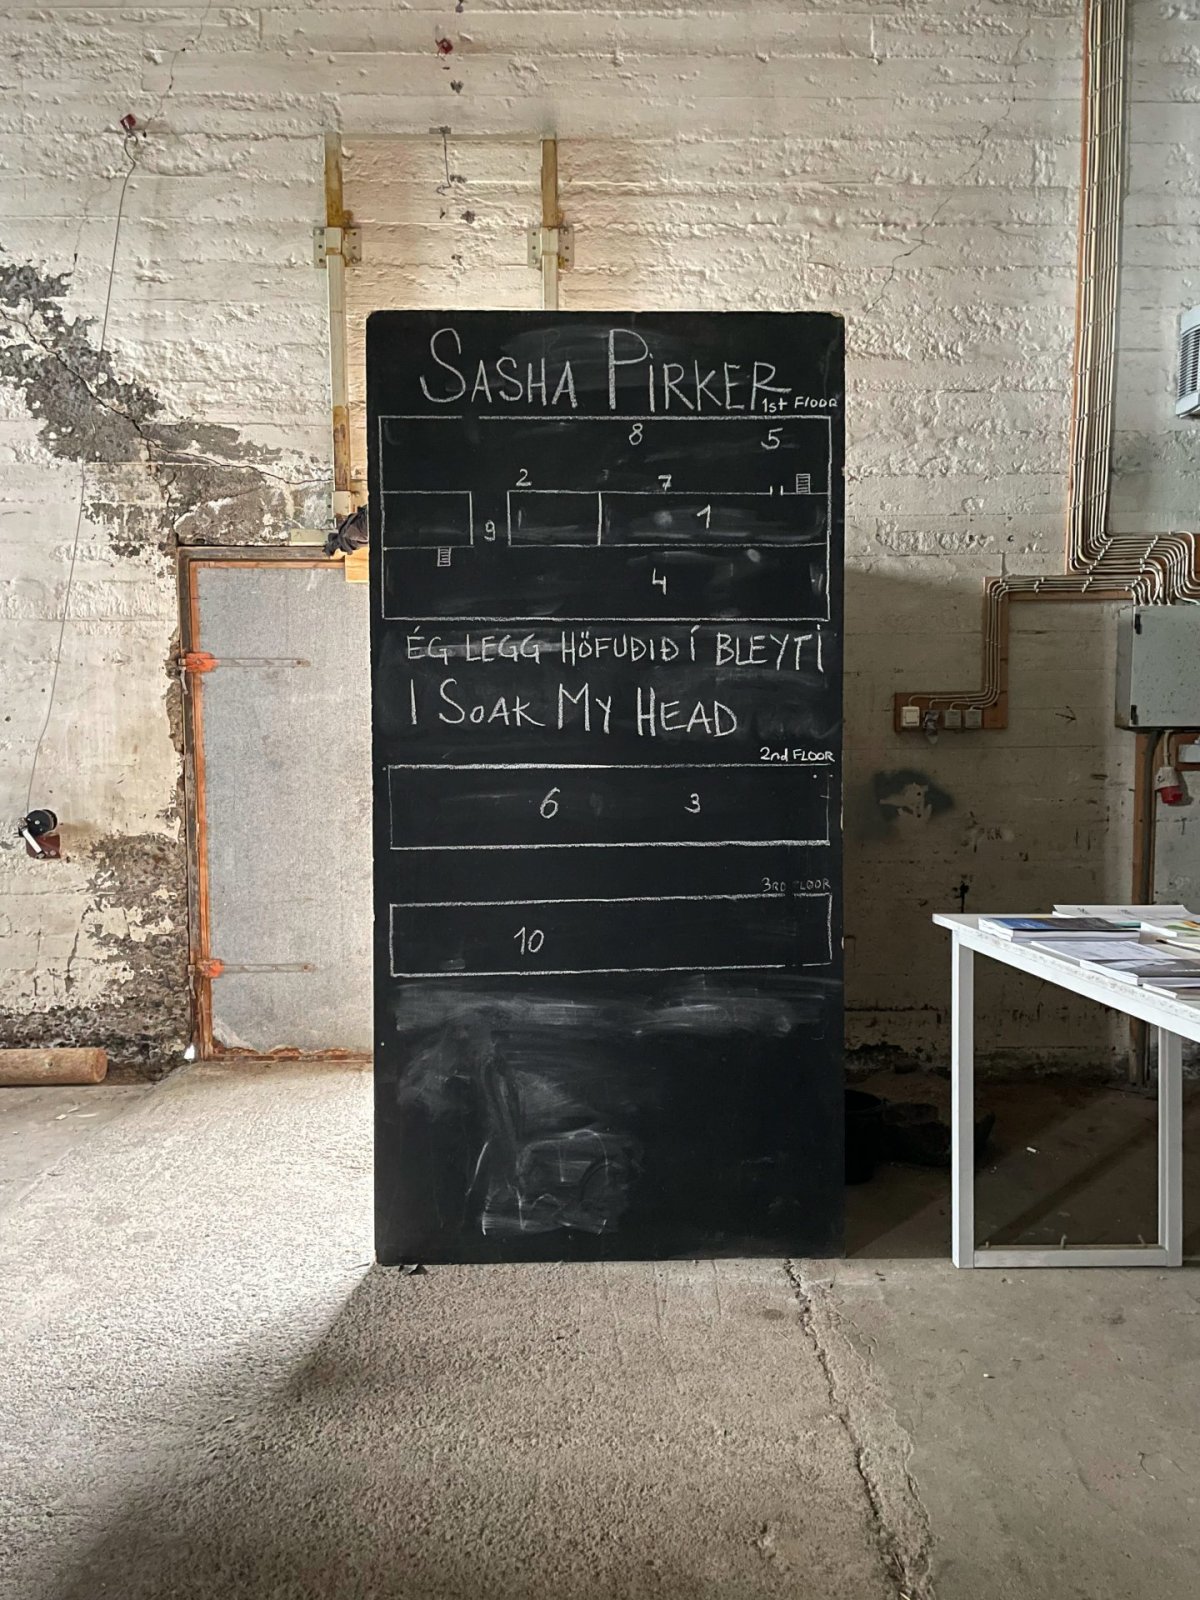 SASHA PIRKER
1st FLOOR
8 5
2 7
9 1
4
ÉG LEGG HÖFUÐIÐ Í BLEYTI
I SOAK MY HEAD
2nd FLOOR
6 3
3RD FLOOR
10